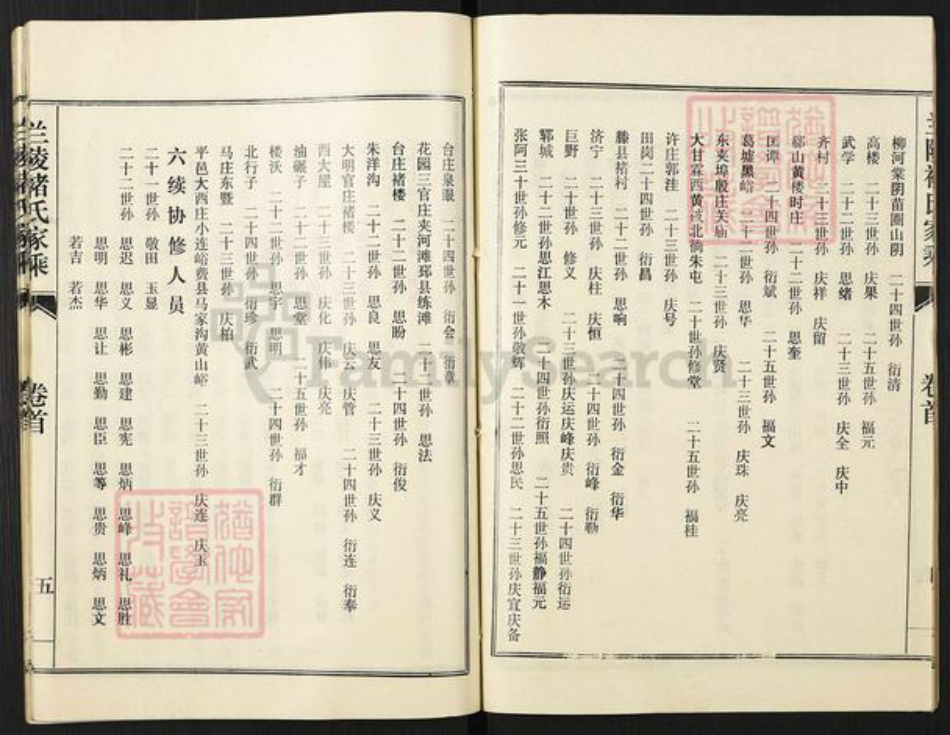 柳河棠阴苗圈山阴 二十四世孙 衍清
高楼 二十三世孙 庆果 二十五世孙 福元
武学 二十二世孙 思绪 二十三世孙 庆全 庆中
齐村 二十三世孙 庆祥 庆留
邹山黄楼时庄 二十二世孙 思奎
匡谭 二十四世孙 衍斌 二十五世孙 福文
葛墟黑峪 二十二世孙 思华 二十三世孙 庆珠 庆亮
东夹埠殷庄关庙 二十三世孙 庆贤
大甘霖西黄 北 朱屯 二十世孙修堂 二十五世孙 福桂
许庄郭洼 二十三世孙 庆号
田岗二十四世孙 衍昌
滕县桥村 二十二世孙 思响 二十四世孙 衍金 衍华
济宁 二十三世孙 庆柱 庆恒 二十四世孙 衍峰 衍勒
巨野 二十世孙 修义 二十三世孙庆运庆峰庆贵 二十四世孙衍运
郓城 二十二世孙思江思木 二十四世孙衍照 二十五世孙福静福元
张阿三十世孙修元 二十一世孙敬辉 二十二世孙思民 二十三世孙庆宣庆备
兰陵褚氏家乘 卷首
台庄泉 二十四世孙 衍会 衍章
花园三官庄夹河滩邳县练滩 二十二世孙 思法
台庄褚楼 二十二世孙 思盼 二十四世孙 衍俊
朱洋沟 二十二世孙 思良 思友 二十三世孙 庆义
大明官庄褚楼 二十三世孙 庆云 庆管 二十四世孙 衍连 衍奉
西大屋 二十三世孙 庆化 庆伟 庆亮
油碾子 二十二世孙 思堂 二十五世孙 福才
楼沃 二十二世孙 思宇 思明 二十四世孙 衍群
北行子 二十四世孙 衍珍 衍武
马庄东暨 二十三世孙 庆柏
平邑大西庄小连峪费县马家沟黄山峪 二十三世孙 庆连 庆玉
六续协修人员
二十一世孙 敬田 玉显
二十二世孙 思迟 思义 思彬 思建 思宪 思炳 思峰 思礼 思胜
思明 思华 思让 思勤 思臣 思等 思贵 思炳 思文
若吉 若杰
兰陵褚氏家乘 卷首 五
FamilySearch